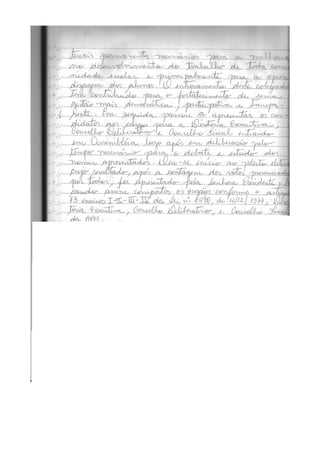 teriais permanentes necessários para a melhora
no desenvolvimento do trabalho de toda comu
nidade escolar e principalmente para a apren
dizagem dos alunos. O entrosamento deste colegiado
tem contribuído para o fortalecimento de uma
gestão mais democrática, participativa e transpa
rente. Em seguida passou a apresentar os can
didatos aos cargos para a Diretoria Executiva,
Conselho Deliberativo e Conselho Fiscal entrando
em Assembléia logo após em deliberação pelo
tempo necessário para o debate e estudo dos
nomes apresentados. Deu-se início ao pleito eleito
cujo resultado, após a contagem dos votos, pronunciado
por todos, foi apresentado pela Senhora Presidente, fi
cando assim compostos os órgãos conforme o artigo
13 incisos I-II-III-IV da Lei nº 1490, de 12/12/1977, Dire
toria Executiva, Conselho Deliberativo, e Conselho Fiscal
da APM: